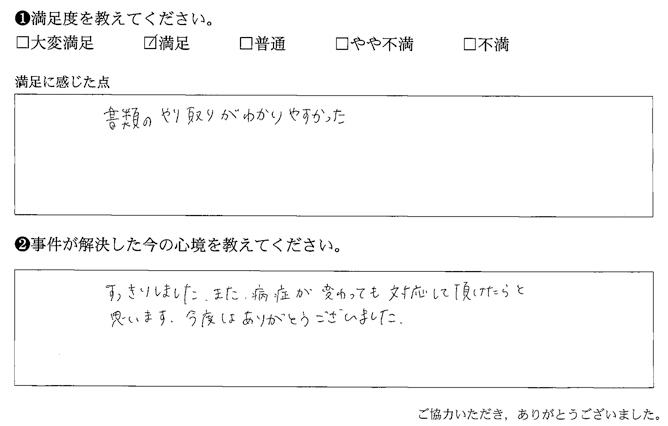 ❶満足度を教えてください。
□大変満足 ☑満足 □普通 □やや不満 □不満
満足に感じた点
書類のやり取りがわかりやすかった
❷事件が解決した今の心境を教えてください。
すっきりしました。また、病症が変わっても対応して頂けたらと
思います。今度はありがとうございました。
ご協力いただき，ありがとうございました。